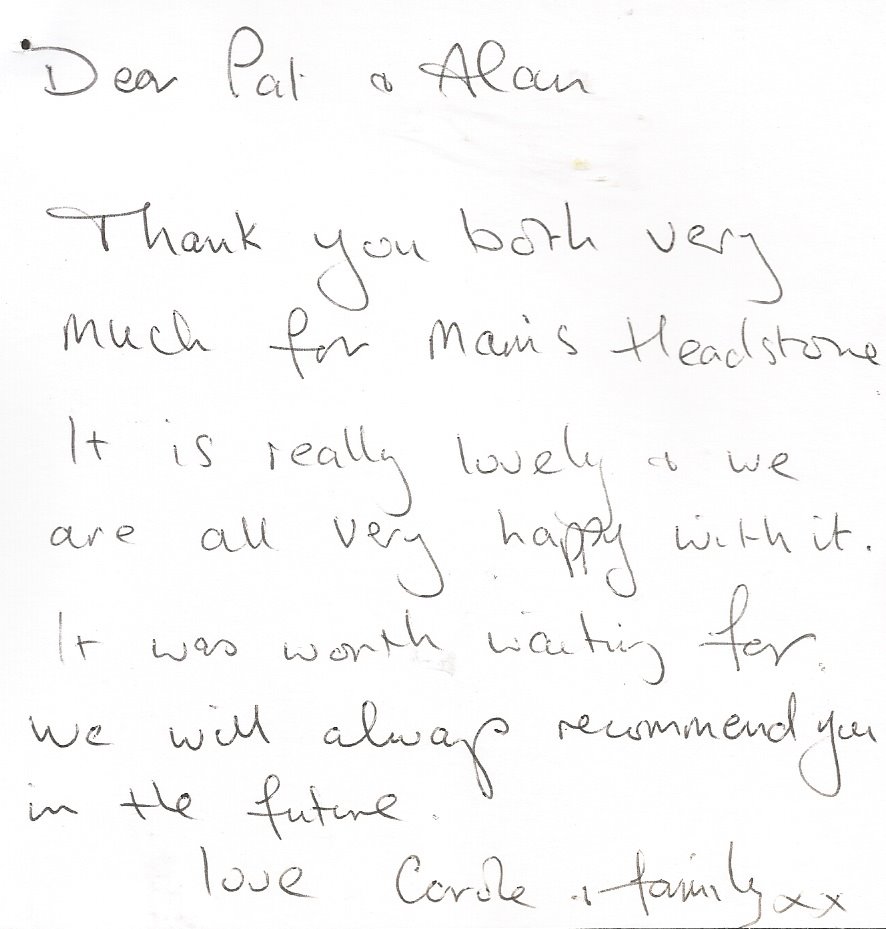 Dear Pat & Alan
Thank you both very
much for Mam's Headstone
It is really lovely & we
are all very happy with it.
It was worth waiting for.
We will always recommend you
in the future.
love Carole & family xx